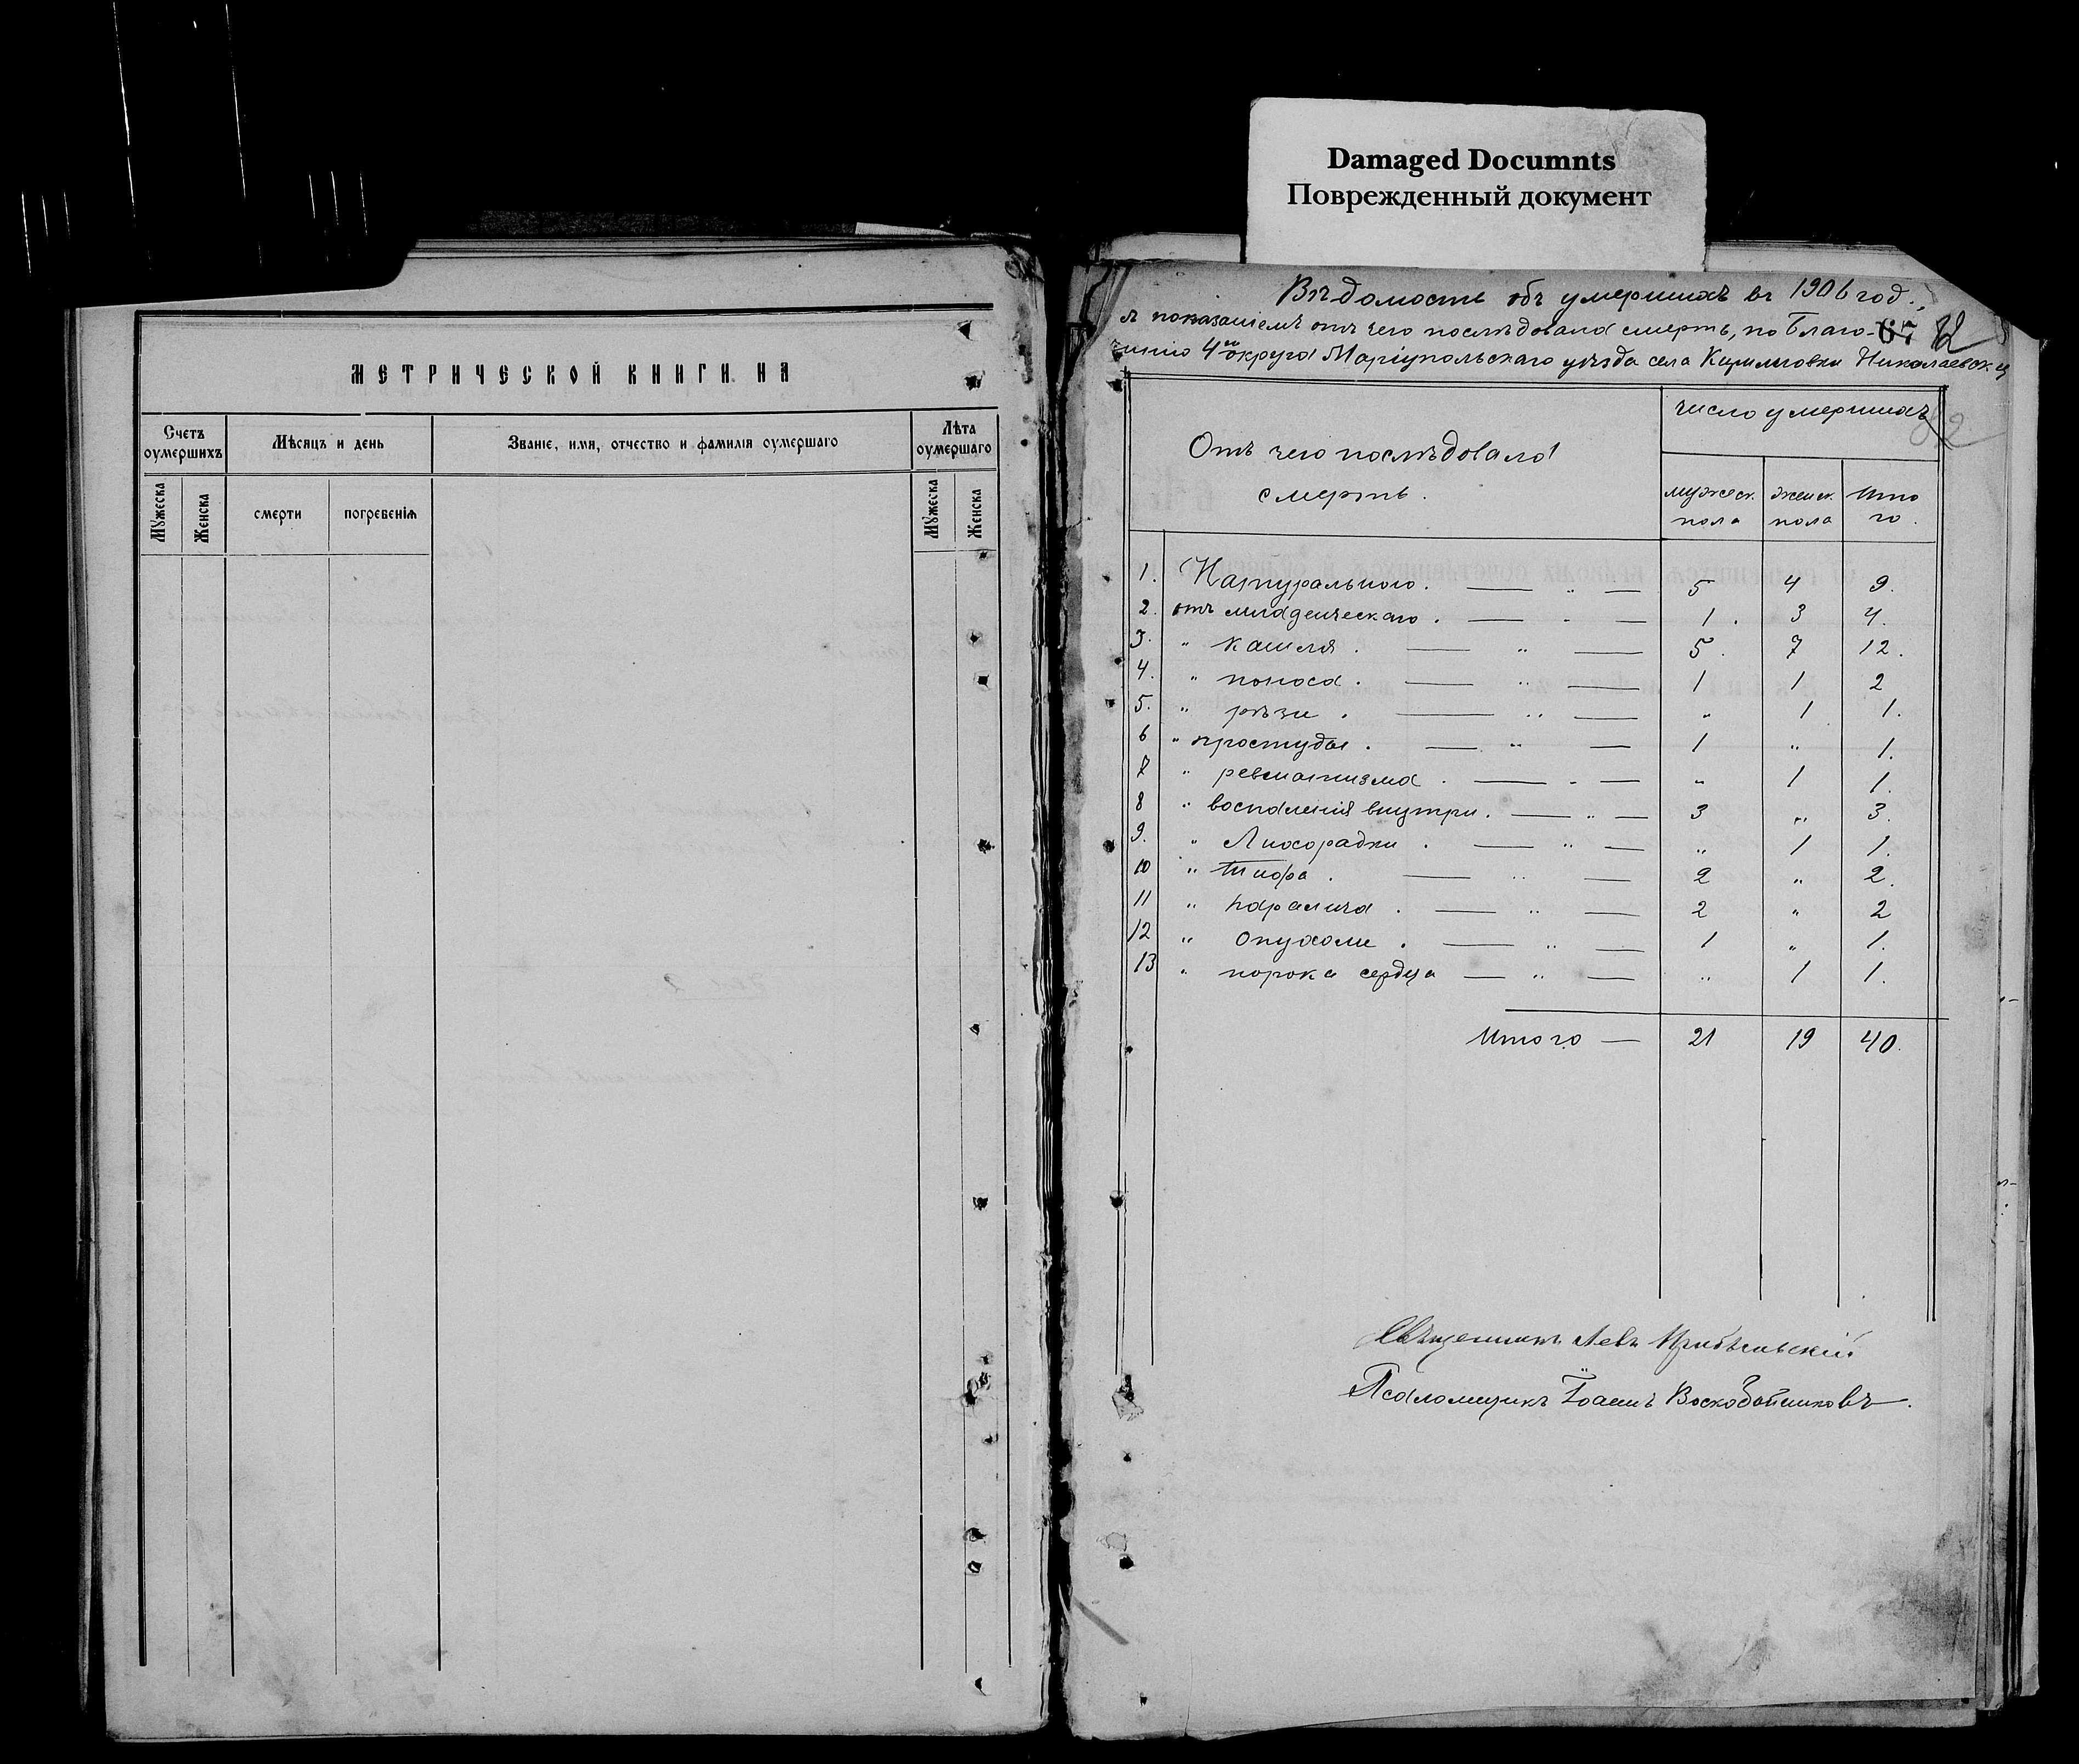 Damaged Documnts
Поврежденный документ
МЕТРИЧЕСКОЙ КНИГИ НА
Счетъ оумершихъ
Мѣсяцъ и день
Званіе, имя, отчество и фамилія оумершаго
Лѣта оумершаго
Мужеска
Женска
смерти
погребенія
Мужеска
Женска
Вѣдомость объ умершихъ въ 1906 год.
съ показаніемъ отъ чего послѣдовала смерть, по Благо- 67 72
чинію 4го округа Маріупольскаго уѣзда села Кирилловки Николаевск. ц
Отъ чего послѣдовала
смерть.
число умершихъ
мужеск. пола
женск. пола
Итого.
1. Натуральнаго. — „ — 5 4 9.
2. отъ младенческаго. — „ — 1. 3 4.
3. „ кашля. — „ — 5. 7 12.
4. „ поноса. — „ — 1 1 2
5. „ рѣзи. — „ — „ 1 1.
6 „ простуды. — „ — 1 „ 1.
7 „ ревматизма. — „ — „ 1 1.
8 „ воспаленія внутри. — „ — 3 „ 3.
9. „ Лихорадки. — „ — „ 1 1.
10 „ Тифа. — „ — 2 „ 2.
11 „ паралича. — „ — 2 „ 2
12 „ опухоли. — „ — 1 „ 1.
13 „ порока сердца — „ — „ 1 1.
Итого — 21 19 40.
Священникъ Левъ
Псаломщикъ Іоаннъ Воскобойниковъ.